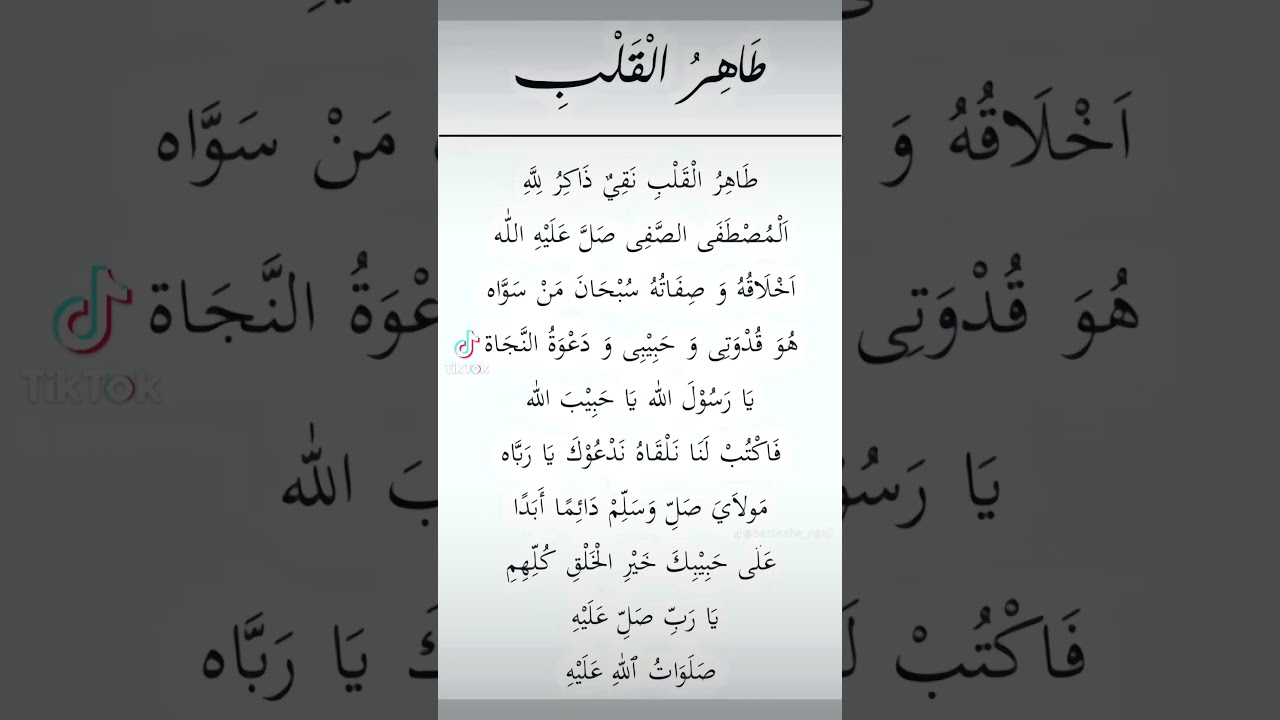 طَاهِرُ الْقَلْبِ
طَاهِرُ الْقَلْبِ نَقِيٌ ذَاكِرُ لِلَّهِ
اَلْمُصْطَفَى الصَّفِى صَلَّ عَلَيْهِ اللّٰه
اَخْلَاقُهُ وَ صِفَاتُهُ سُبْحَانَ مَنْ سَوَّاه
هُوَ قُدْوَتِى وَ حَبِيْبِى وَ دَعْوَةُ النَّجَاة
TikTok
يَا رَسُوْلَ الله يَا حَبِيْبَ الله
فَاكْتُبْ لَنَا نَلْقَاهُ نَدْعُوْكَ يَا رَبَّاه
مَولاَيَ صَلِّ وَسَلِّمْ دَائِمًا أَبَدًا
عَلٰى حَبِيْبِكَ خَيْرِ الْخَلْقِ كُلِّهِمِ
يَا رَبِّ صَلِّ عَلَيْهِ
صَلَوَاتُ ٱللهِ عَلَيْهِ
اَخْلَاقُهُ وَ
مَنْ سَوَّاه
هُوَ قُدْوَتِى
عْوَةُ النَّجَاة
TikTok
يَا رَسُو
بَ اللّٰه
فَاكْتُبْ لَ
كَ يَا رَبَّاه